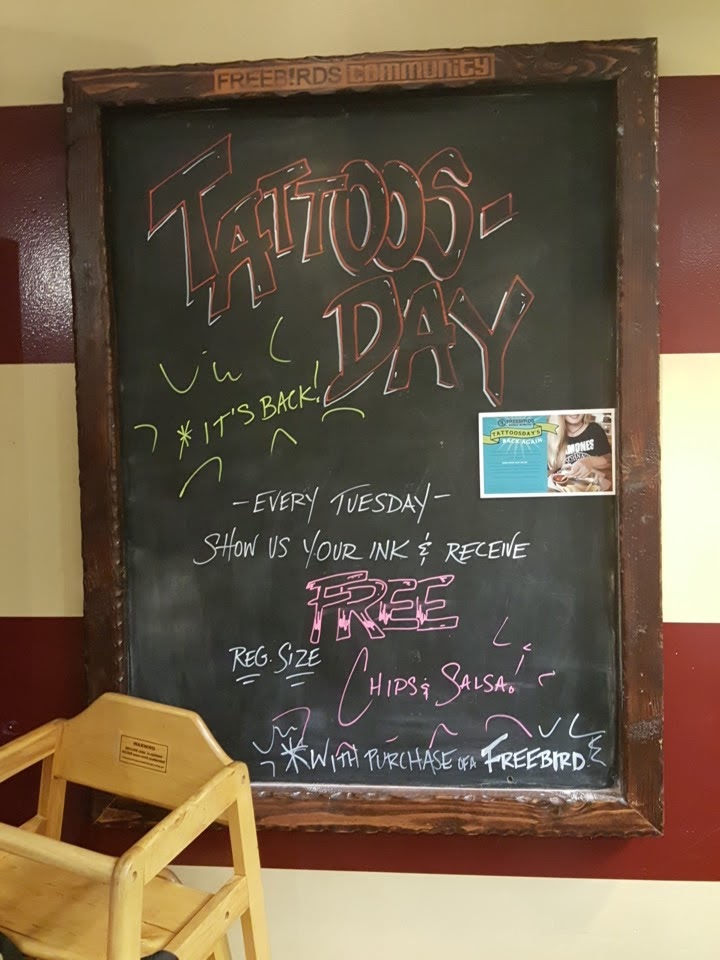 FREEB!RDS COMMUNITY
TATTOOS-
DAY
*IT'S BACK!
TATTOOSDAY'S
BACK AGAIN
-EVERY TUESDAY-
SHOW US YOUR INK & RECEIVE
FREE
REG. SIZE
CHIPS & SALSA!
*WITH PURCHASE OF A FREEBIRD
WARNING